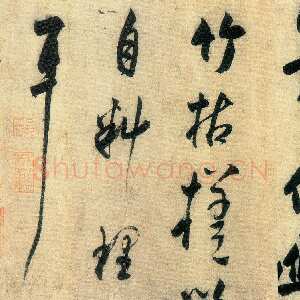 作幽
竹枯槎以
自料理
耳